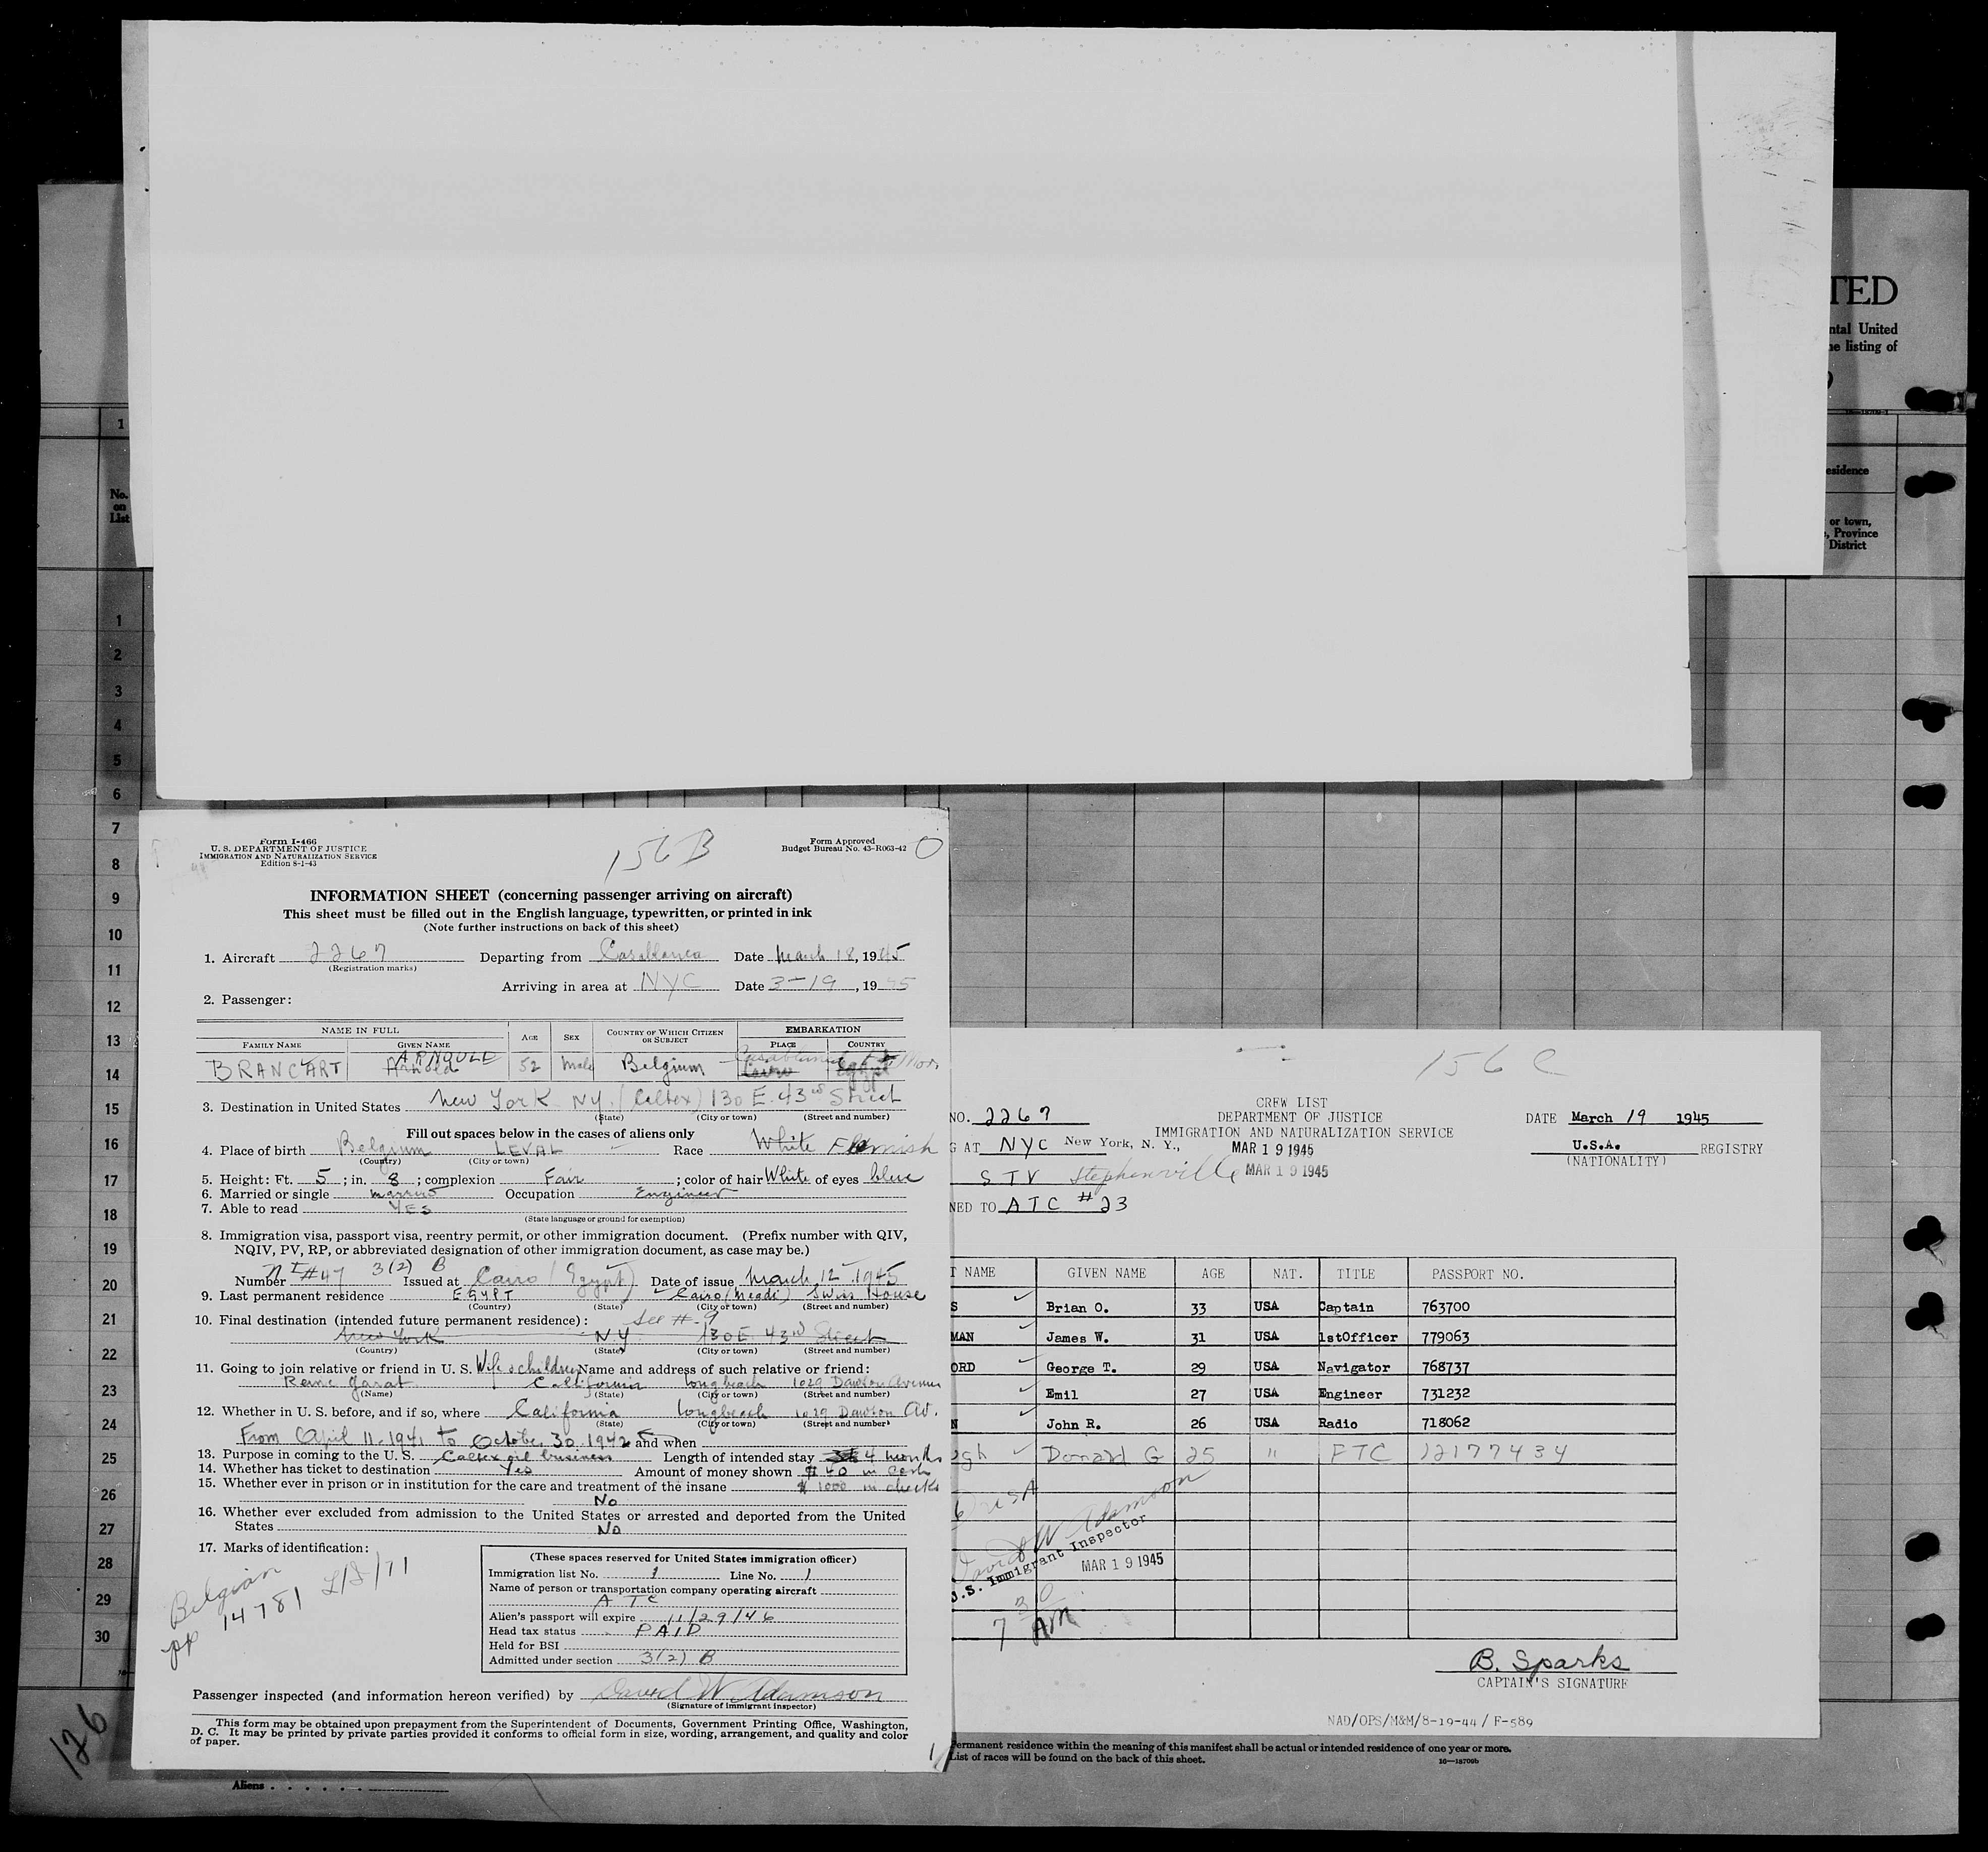 TED
ntal United
ne listing of
1
esidence
No.
on
List
or town,
, Province
District
1
2
3
4
5
6
7
8
9
10
11
12
13
14
15
16
17
18
19
20
21
22
23
24
25
26
27
28
29
30
126
Aliens
Form I-466
U. S. DEPARTMENT OF JUSTICE
IMMIGRATION AND NATURALIZATION SERVICE
Edition 8-1-43
156 B
Form Approved
Budget Bureau No. 43-R063-42
INFORMATION SHEET (concerning passenger arriving on aircraft)
This sheet must be filled out in the English language, typewritten, or printed in ink
(Note further instructions on back of this sheet)
1. Aircraft 2267 Departing from Casablanca Date March 18, 1945
(Registration marks)
Arriving in area at NYC Date 3-19, 1945
2. Passenger:
NAME IN FULL AGE SEX COUNTRY OF WHICH CITIZEN OR SUBJECT EMBARKATION
FAMILY NAME GIVEN NAME PLACE COUNTRY
BRANCART Arnold ARNOULE 52 Male Belgium Casablanca Cairo Egypt Mor.
3. Destination in United States New York NY. (Caltex) 130 E. 43rd Street
(State) (City or town) (Street and number)
Fill out spaces below in the cases of aliens only
4. Place of birth Belgium LEVAL Race White Flemish
(Country) (City or town)
5. Height: Ft. 5; in. 8; complexion Fair; color of hair White of eyes blue
6. Married or single married Occupation Engineer
7. Able to read YES
(State language or ground for exemption)
8. Immigration visa, passport visa, reentry permit, or other immigration document. (Prefix number with QIV,
NQIV, PV, RP, or abbreviated designation of other immigration document, as case may be.)
Number NI #47 3(2) B Issued at Cairo (Egypt) Date of issue March 12 1945
9. Last permanent residence EGYPT Cairo (Meadi) Swiss House
(Country) (State) (City or town) (Street and number)
10. Final destination (intended future permanent residence): See #-9
New York NY 130 E 43rd Street
(Country) (State) (City or town) (Street and number)
11. Going to join relative or friend in U. S. Wife & children Name and address of such relative or friend:
California Longbeach 1029 Dawson Avenue
(Name) (State) (City or town) (Street and number)
12. Whether in U. S. before, and if so, where California Longbeach 1029 Dawson Av.
(State) (City or town) (Street and number)
From April 11-1941 to October 30 1942 and when
13. Purpose in coming to the U. S. Caltex oil business Length of intended stay 4 months
14. Whether has ticket to destination Yes Amount of money shown $ 40 in cash
15. Whether ever in prison or in institution for the care and treatment of the insane $ 1000 in checks
No
16. Whether ever excluded from admission to the United States or arrested and deported from the United
States No
17. Marks of identification:
Belgian
pp 14781
(These spaces reserved for United States immigration officer)
Immigration list No. 1 Line No. 1
Name of person or transportation company operating aircraft
ATC
Alien's passport will expire 11/29/46
Head tax status PAID
Held for BSI
Admitted under section 3(2) B
Passenger inspected (and information hereon verified) by David W Adamson
(Signature of immigrant inspector)
This form may be obtained upon prepayment from the Superintendent of Documents, Government Printing Office, Washington,
D. C. It may be printed by private parties provided it conforms to official form in size, wording, arrangement, and quality and color
of paper.
156 C
CREW LIST
NO. 2267 DEPARTMENT OF JUSTICE DATE March 19 1945
IMMIGRATION AND NATURALIZATION SERVICE
G AT NYC New York, N. Y., MAR 19 1945 U.S.A. REGISTRY
(NATIONALITY)
STV Stephenville MAR 19 1945
NED TO ATC #23
T NAME GIVEN NAME AGE NAT. TITLE PASSPORT NO.
S Brian O. 33 USA Captain 763700
MAN James W. 31 USA 1stOfficer 779063
ORD George T. 29 USA Navigator 768737
Emil 27 USA Engineer 731232
N John R. 26 USA Radio 718062
gh Donald G 25 " FTC 12177434
6 Dr USA
David W Adamson
U.S. Immigrant Inspector
MAR 19 1945
7 30 AM
B. Sparks
CAPTAIN'S SIGNATURE
NAD/OPS/M&M/8-19-44/ F-589
Permanent residence within the meaning of this manifest shall be actual or intended residence of one year or more.
List of races will be found on the back of this sheet.
16—18709b